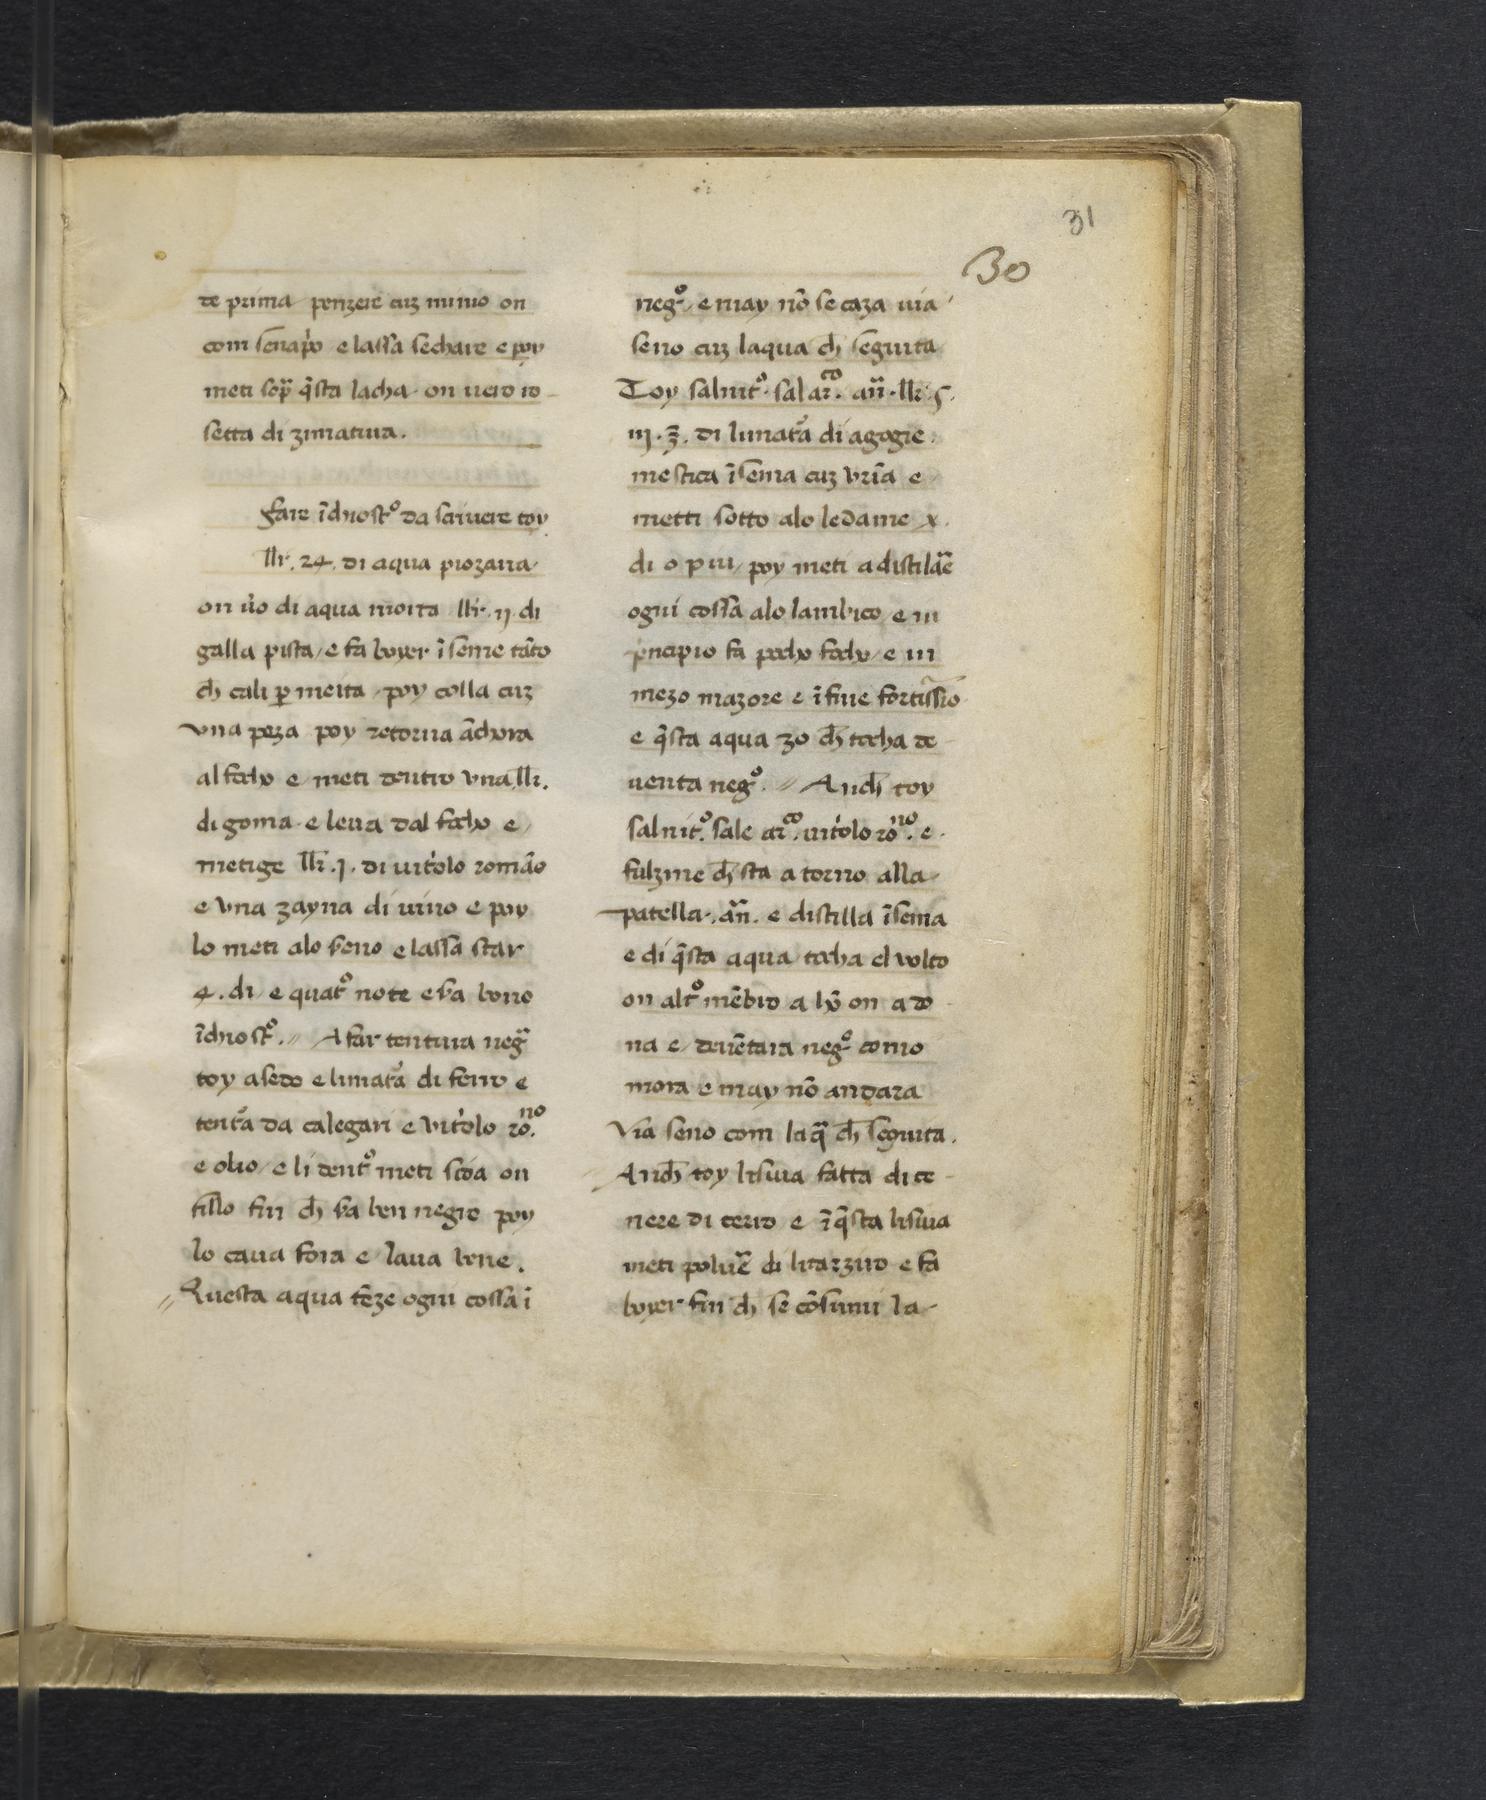 31
30
de prima penzere cuz minio on
com senap̃o e lassa sechare e poy
meti sop̃ q̃sta lacha · on vero ro
setta di zimatura .
Fare ĩchiost᷒ᵒ da scrivere toy
llr̃. 24. di aqua piozana
on ṽo di aqua morta llr̃. ij. di
galla pista / e fa boyer ĩseme tãto
ch̃ cali ꝑ meita / poy colla cuz
vna peza poy retorna ãchora
al focho e meti dentro vna llr̃.
di goma e leva dal focho e
metige llr̃ .j. di vitr̃olo romão
e vna zayna di vino e poy
lo meti alo sreno e lassa star
4. di / e quat̃ᵒ note e sra bono
ĩchiost̃ᵒ. // A far tentura negr̃a
toy asedo e limatr̃a di ferro e
tentr̃a da calegari e vitr̃olo ro.ⁿᵒ
e olio / e li dentr̃ᵒ meti seda on
fillo fin ch̃ sra ben negro poy
lo cava fora e lava bene .
// Questa aqua tẽze ogni cossa ĩ
negr̃ᵒ / e may nõ se caza via
seno cuz laqua ch̃ seguita
Toy salnitr̃ᵒ · sal ar̃.ᶜᵒ añ · llr̃ · 5 ·
iij . ʒ̃ . di limatr̃a di agogie
mestica ĩsema cuz vrĩa e
metti sotto alo ledame x .
di o piu / poy meti a distilãe
ogni cossa alo lambico e in
p̃ncipio fa pocho focho / e in
mezo mazore e ĩ fine fortissĩo
e q̃sta aqua zo ch̃ tocha de
venta negr̃ᵒ . // Anch̃ toy
salnitr̃ᵒ. sale ar̃ᶜᵒ. vitr̃olo ro.ⁿᵒ e
fulzine ch̃ sta a torno alla
patella . añ . e distilla ĩsema
e di q̃sta aqua tocha el volto
on altr̃ᵒ mẽbro a hõ on a do
na e / devẽtara negr̃ᵒ como
mora e may nõ andara
via seno com laq̃ ch̃ seguita .
Anch̃ toy lisiva fatta di ce
nere di cerro e ĩ q̃sta lisiva
meti polvẽ di litarziro e fa
boyer fin ch̃ se cõsumi la